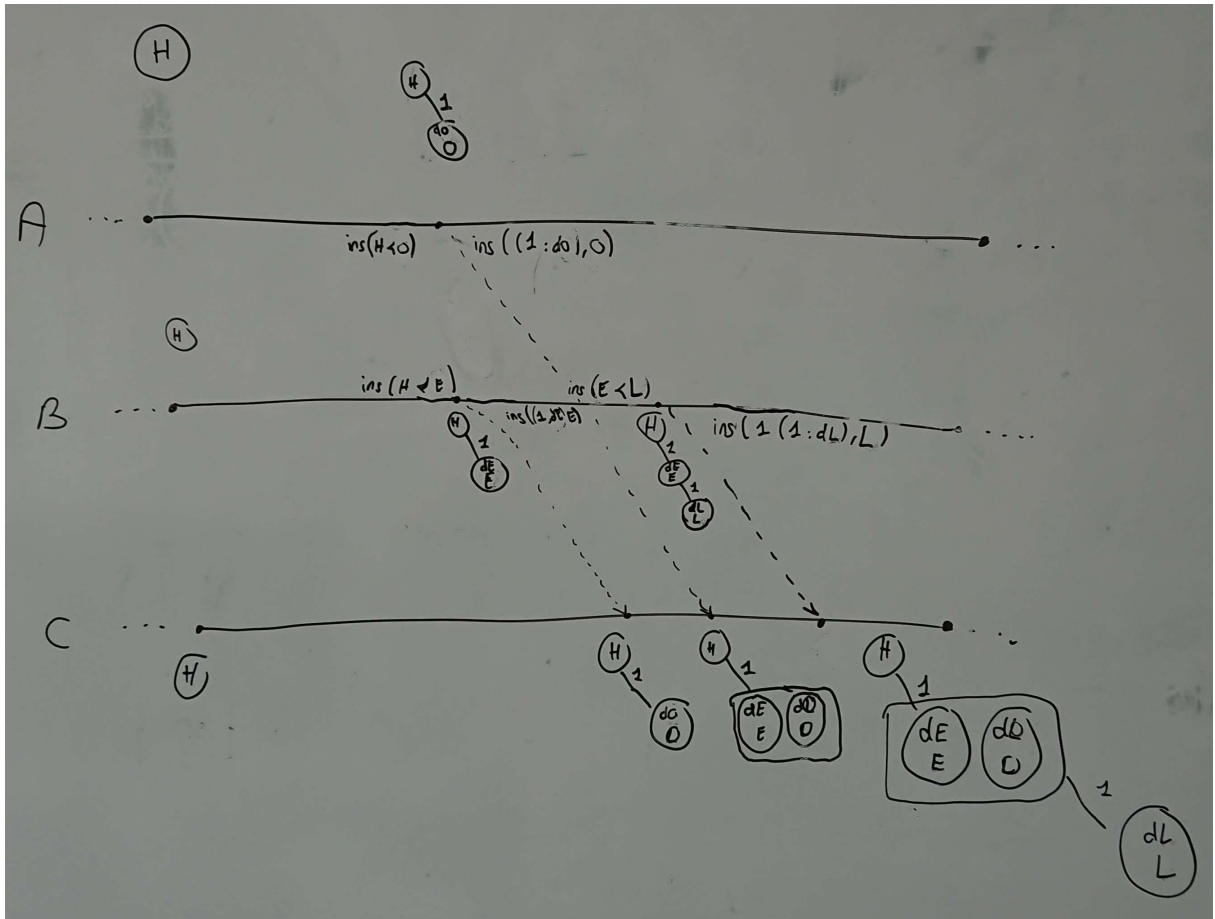 H
H
1
dO
O
A
ins(H<O)
ins((1:dO),O)
H
B
ins(H<E)
ins(E<L)
H
1
dE
E
H
1
dE
E
1
dL
L
ins(1(1:dL),L)
C
H
H
1
dO
O
H
1
dE
E
dO
O
H
1
dE
E
dO
O
1
dL
L